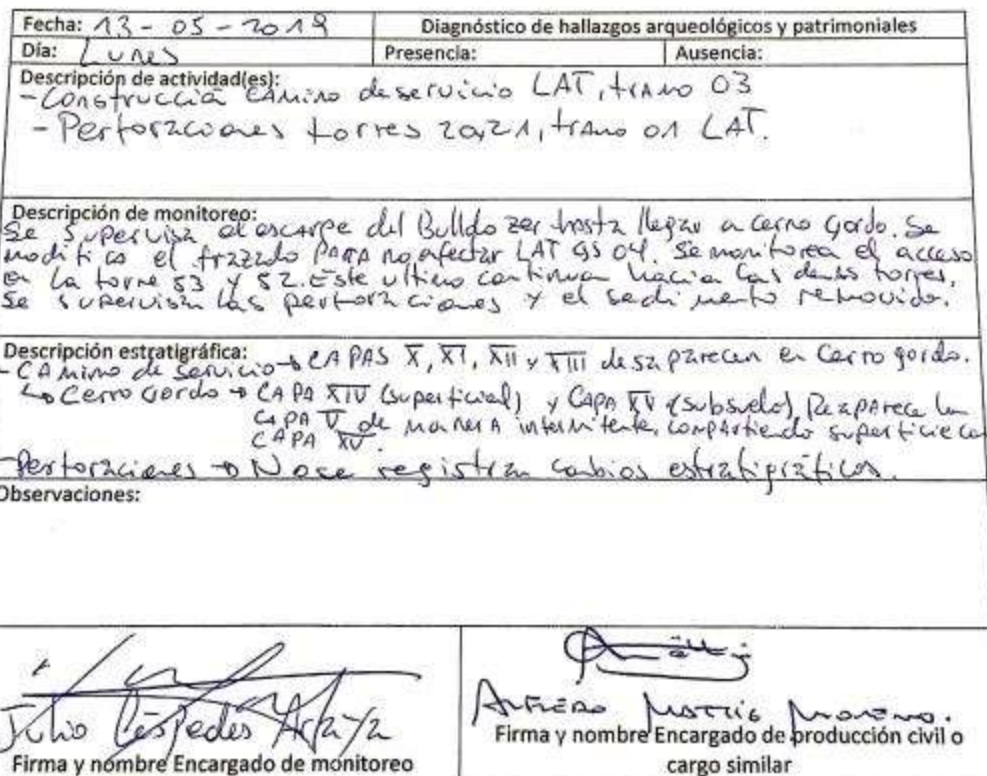 Fecha: 13-05-2019 Diagnóstico de hallazgos arqueológicos y patrimoniales
Día: Lunes Presencia: Ausencia:
Descripción de actividad(es):
- Construcción camino de servicio LAT, tramo 03
- Perforaciones torres 20,21, tramo 01 LAT.
Descripción de monitoreo:
Se supervisa el escarpe del Bulldozer hasta llegar a cerro gordo. Se
modifica el trazado para no afectar LAT GS 04. Se monitorea el acceso
en la torre 53 y 52. Este ultimo continua hacia las demás torres.
Se supervisan las perforaciones y el sedimento removido.
Descripción estratigráfica:
- Camino de servicio → CAPAS X, XI, XII y XIII desaparecen en Cerro gordo.
↳ Cerro Gordo → CAPA XIV (superficial) y CAPA XV (subsuelo), Reaparece la
CAPA V de manera intermitente, compartiendo superficie con
CAPA XV.
- Perforaciones → No se registran cambios estratigráficos.
Observaciones:
Julio Céspedes Araya
Firma y nombre Encargado de monitoreo
Alfredo Moreno.
Firma y nombre Encargado de producción civil o
cargo similar